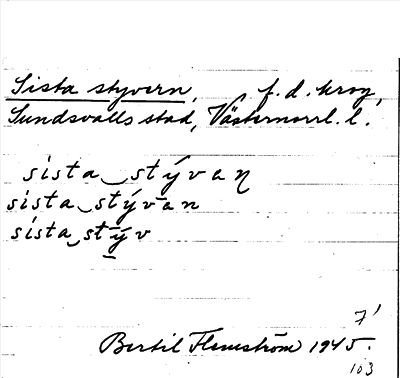 Sista styvern, f.d. krog,
Sundsvalls stad, Västernorrl. l.
sista‿stývaṇ
sista‿stývan
sista‿stýv
7'
Bertil Flemström 1945.
103